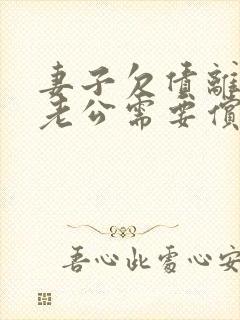 妻子欠债離
老公需要償
吾心此處心安